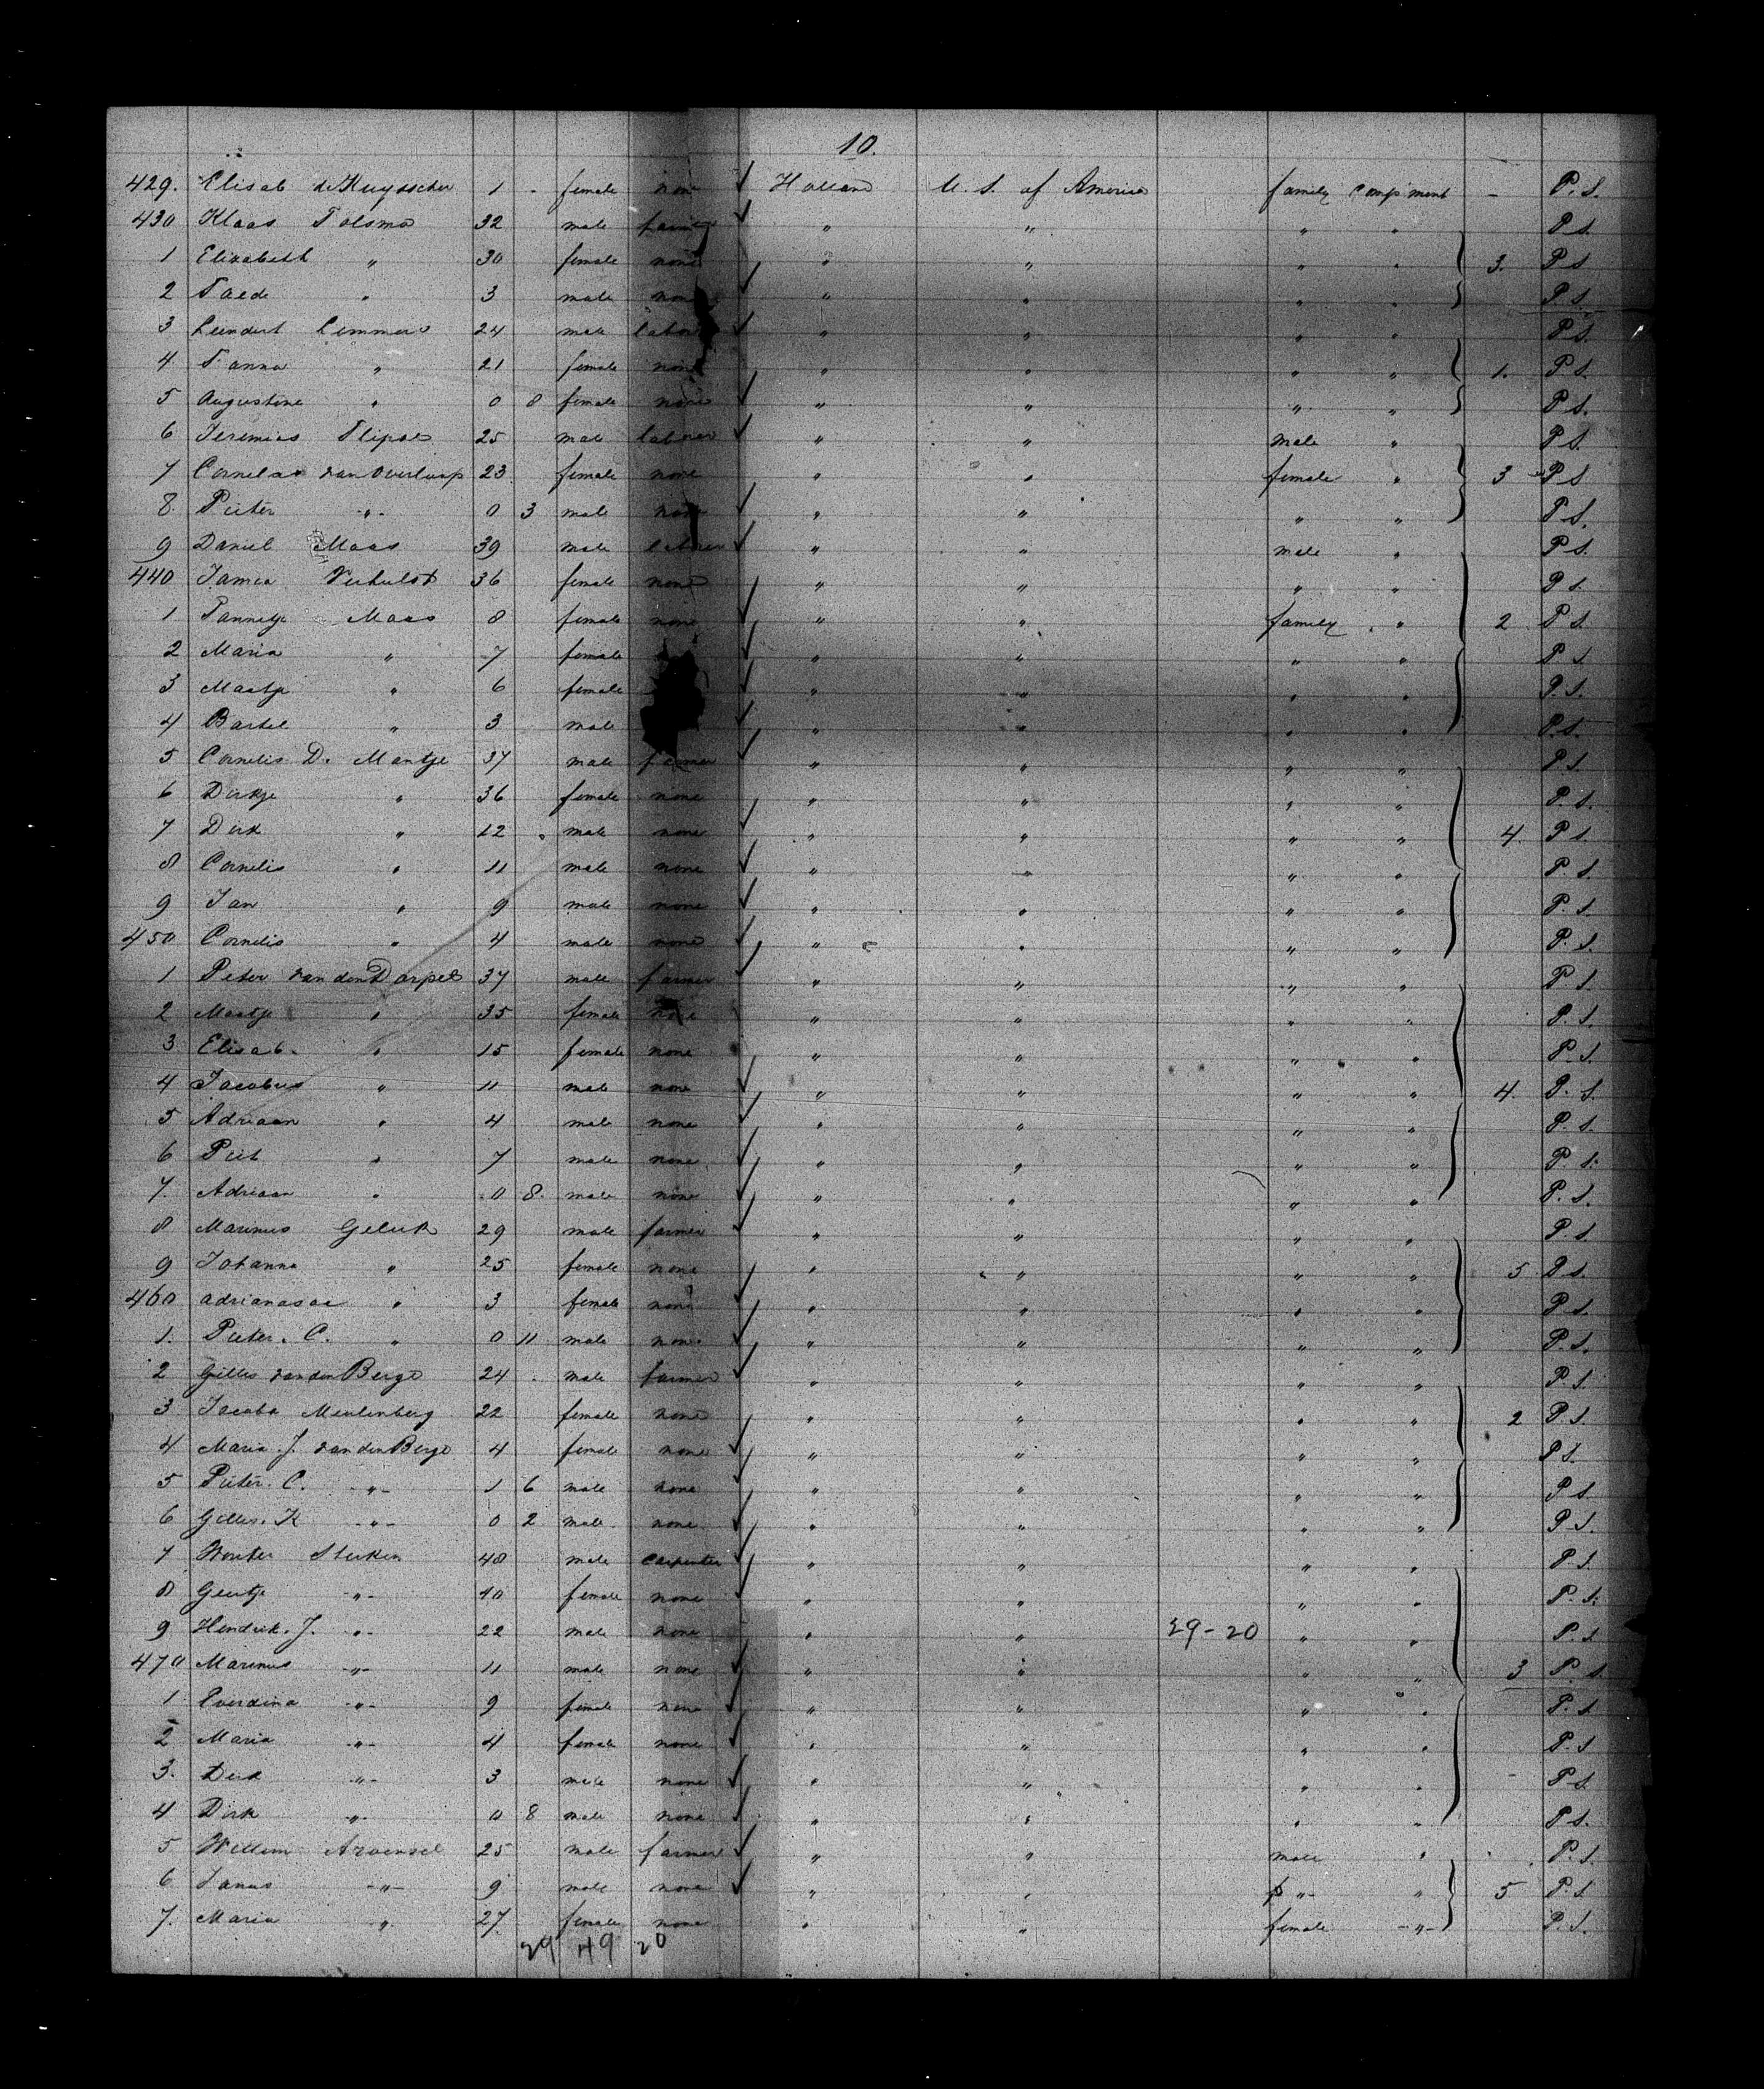 10.
429. Elisab deKuysscher 1 - female none Holland U. S. of America family comp'ment - P. S.
430 Klaas Tolsma 32 male farmer " " " " P S.
1 Elizabeth " 30 female none " " " " 3. P S
2 Taede " 3 male none " " " " P S.
3 Leendert Lemmers 24 male labor " " " " P S.
4. Tanna " 21 female none " " " " 1. P S.
5 Augustine " 0 8 female none " " " " P S.
6 Jeremias Flipse 25 male laborer " " male " P S.
7 Cornelia van Overloop 23 female none " " female " 3 P S
8. Pieter -"- 0 3 male none " " " " P S.
9 Daniel Maas 39 male laborer " " male " P S.
440 Janna Verhulst 36 female none " " " " P S.
1 Tannetje Maas 8 female none " " family " 2 P S.
2 Maria " 7 female " " " " P S
3 Maatje " 6 female " " " " P. S.
4 Bartel " 3 male " " " " P. S.
5 Cornelis D. Mantje 37 male farmer " " " " P S.
6 Dirkje " 36 female none " " " " P. S.
7 Dirk " 12 male none " " " " 4. P S.
8 Cornelis " 11 male none " " " " P. S.
9 Jan " 9 male none " " " " P. S.
450 Cornelis " 4 male none " " " " P. S.
1 Peter van den Dorpel 37 male farmer " " " " P S.
2 Maatje " 35 female none " " " " P. S.
3 Elisab. " 15 female none " " " " P. S.
4 Jacobus " 11 male none " " " " 4. P. S.
5 Adriaan " 4 male none " " " " P. S.
6 Piet " 7 male none " " " " P. S.
7. Adriaan " 0 8. male none " " " " P. S.
8 Marinus Geluk 29 male farmer " " " " P. S.
9 Johanna " 25 female none " " " " 5 P S.
460 " 3 female none " " " " P S.
1. Pieter. C. " 0 11 male none " " " " P. S.
2 Gilles van den Berge 24 male farmer " " " " P. S.
3 Jacoba Meulenberg 22 female none " " " " 2 P. S.
4 Maria. J. van den Berge 4 female none " " " " P S.
5 Pieter. C. -"- 1 6 male none " " " " P S.
6 Gilles. K -"- 0 2 male none " " " " P S.
7 Wouter Sterken 48 male carpenter " " " " P. S.
8 Geertje -"- 40 female none " " " " P. S.
9 Hendrik. J. -"- 22 male none " " 29-20 " " P. S
470 Marinus -"- 11 male none " " " " 3 P S
1 Everdina -"- 9 female none " " " " P. S
2 Maria -"- 4 female none " " " " P. S
3. Derk -"- 3 male none " " " " P S
4 Dirk -"- 0 8 male none " " " " P S.
5 Willem 25 male farmer " " male " P. S.
6 Janus -"- 9 male none " " -"- " 5 P. S
7. Maria " 27 female none " " female -"- P. S.
29 49 20